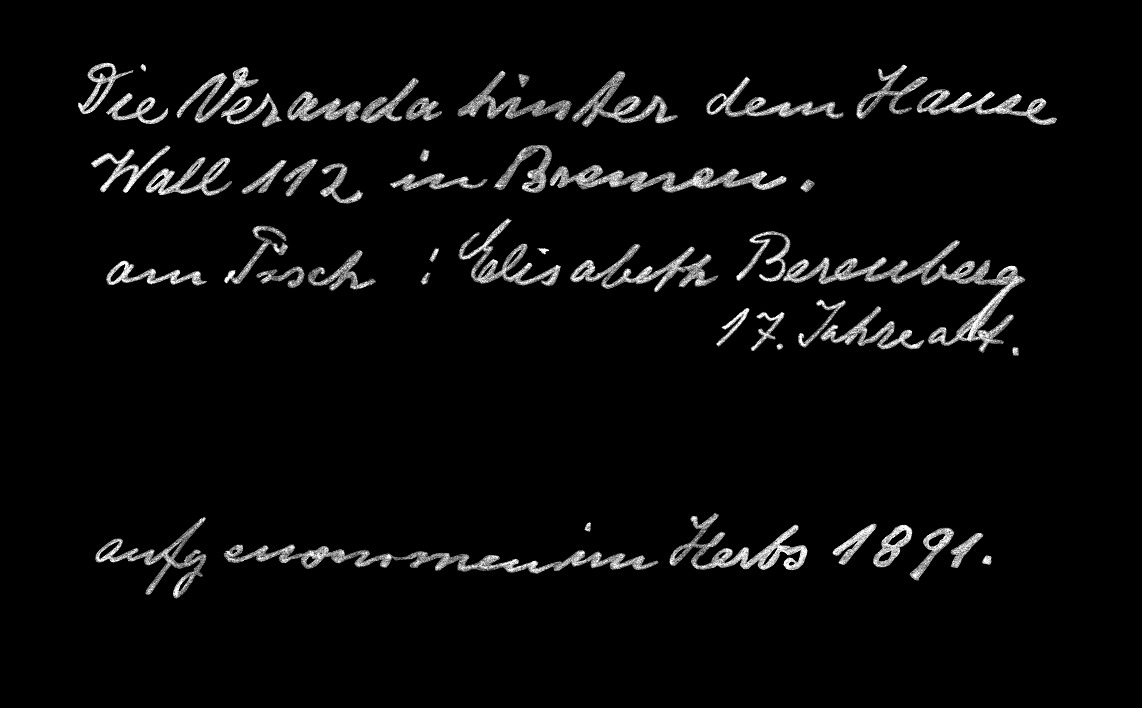 Die Veranda hinter dem Hause
Wall 112 in Bremen.
am Tisch : Elisabeth Berenberg
17. Jahre alt.
aufgenommen im Herbs 1891.